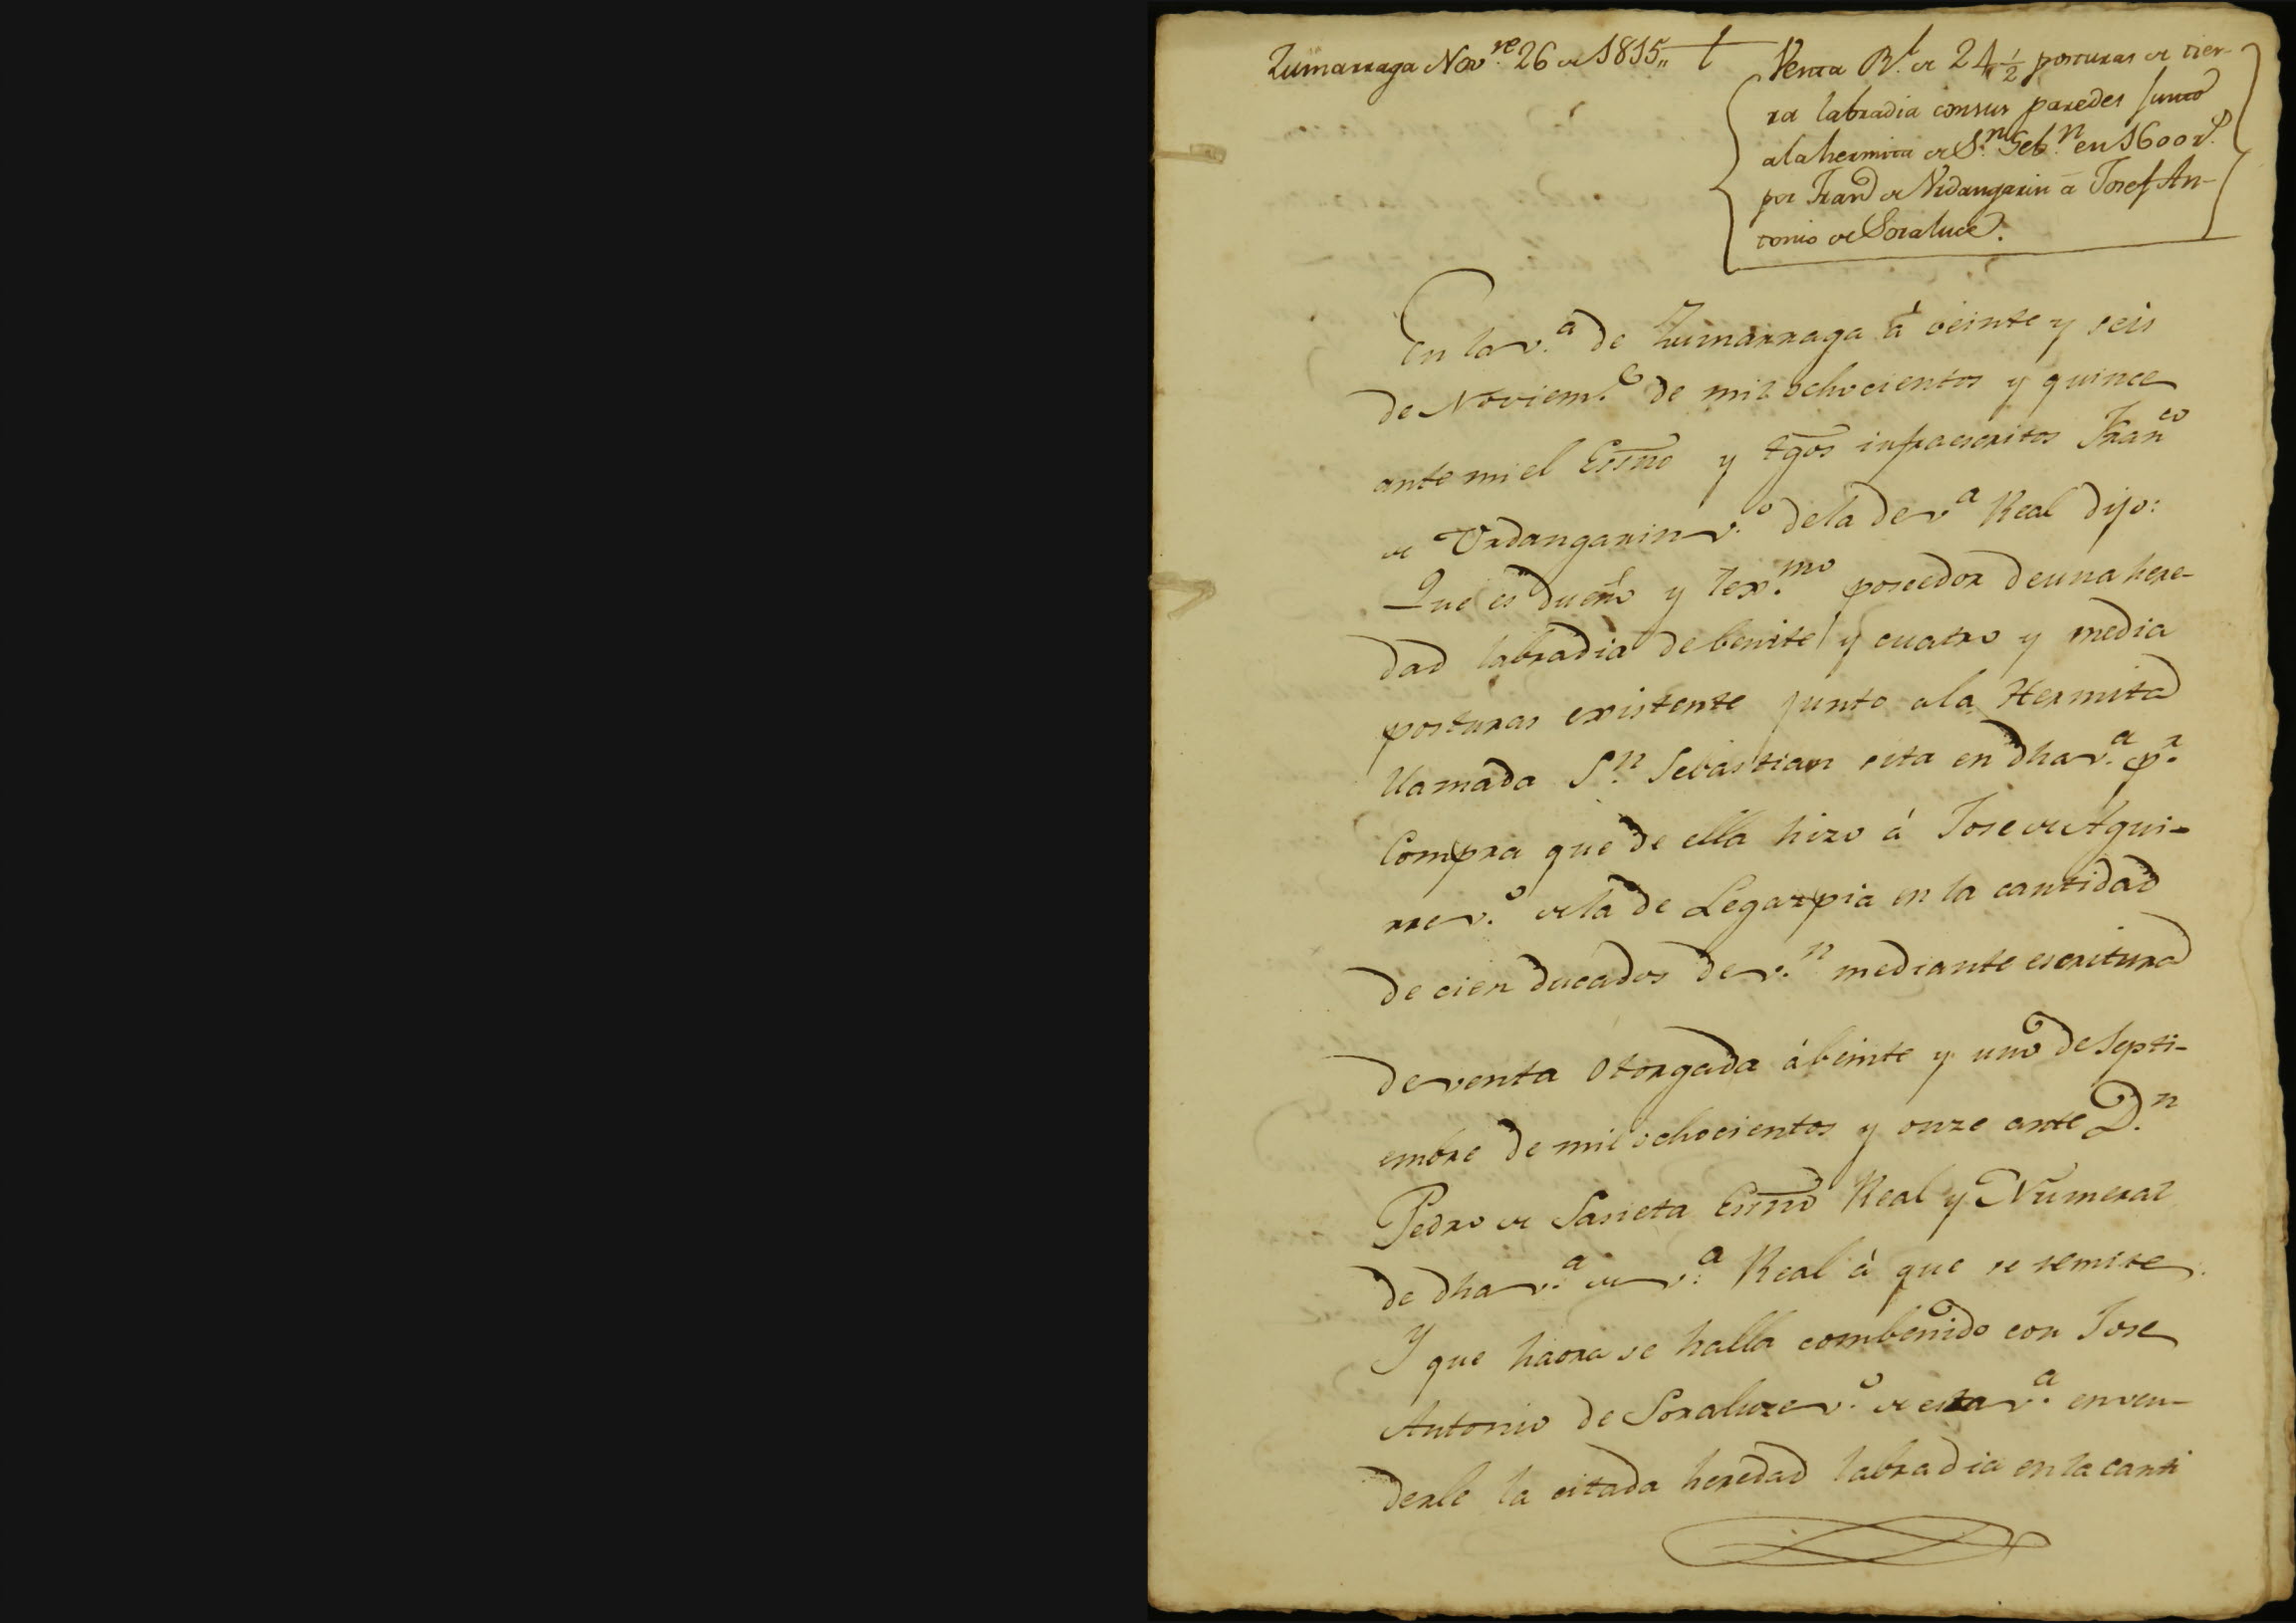 Zumarraga Nov.re 26 de 1815,,
Venta Rl. de 24 1/2 posturas de tier-
ra labradia con sus paredes junto
ala hermita de S.n Seb.n en 1600 rs.
por Franco de Vrdangarin a Josef An-
tonio de Soraluce.
En la v.a de Zumarraga á veinte y seis
de Noviem.e de mil ochocientos y quince
ante mi el Essno y tgos infraescritos Franco
de Vrdangarin v.o dela de v.a Real dijo:
Que es dueño y lex.mo poseedor de una here-
dad labradia de beinte y cuatro y media
posturas existente junto ala Hermita
llamada S.n Sebastian sita en dha v.a p.r
Compra que de ella hizo á Jose de Agui-
rre v.o dela de Legarpia en la cantidad
de cien ducados de v.n mediante escritura
de venta otorgada á beinte y uno de Septi-
embre de mil ochocientos y onze ante D.n
Pedro de Sasieta Essno Real y Numeral
de dha v.a de v.a Real á que se remite.
Y que haora se halla combenido con Jose
Antonio de Soraluze v.o de esta v.a en ven-
derle la citada heredad labradia en la canti